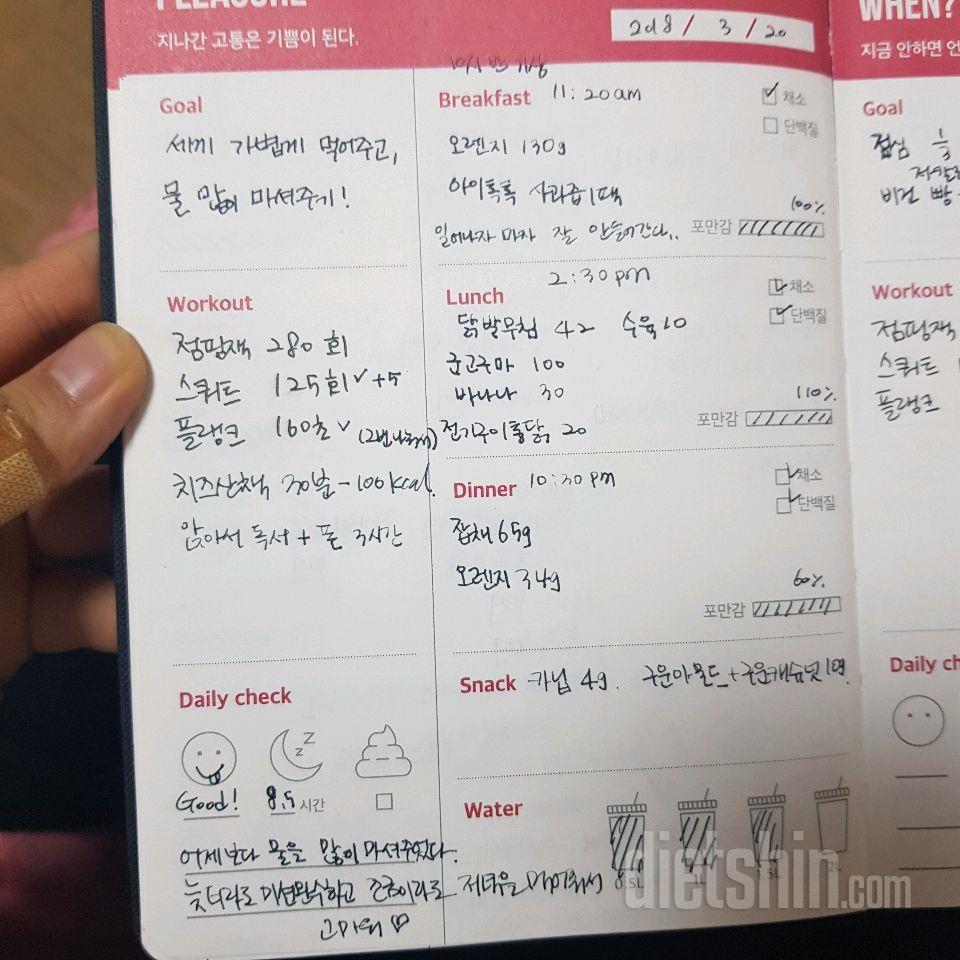 PLEASURE
지나간 고통은 기쁨이 된다.
2018 / 3 / 20
Goal
세끼 가볍게 먹어주고,
물 많이 마셔주기!
Workout
점핑잭 280회
스쿼트 125회✓+5
플랭크 160초✓
치즈산책 30분-100kcal.
앉아서 독서 + 폰 3시간
Daily check
Good! 8.5시간
어제보다 물을 많이 마셔주었다.
늦더라도 미션완수하고 조금이라도 저녁을 먹어줘서
고마워♡
10시 반 기상
Breakfast 11:20am
채소
단백질
오렌지 130g
아이톡톡 사과즙1팩
일어나자 마자 잘 안들어간다..
100%
포만감
Lunch 2:30pm
채소
단백질
닭발무침 42 수육10
군고구마 100
바나나 30
전기구이통닭 20
110%
포만감
Dinner 10:30pm
채소
단백질
잡채65g
오렌지 34g
60%
포만감
Snack 카닙 4g. 구운아몬드+구운캐슈넛10g.
Water
0.5L 1L 1.5L 2L
WHEN?
지금 안하면 언
Goal
점심
비건 빵
Workout
점핑잭
스쿼트
플랭크
Daily ch
dietshin.com